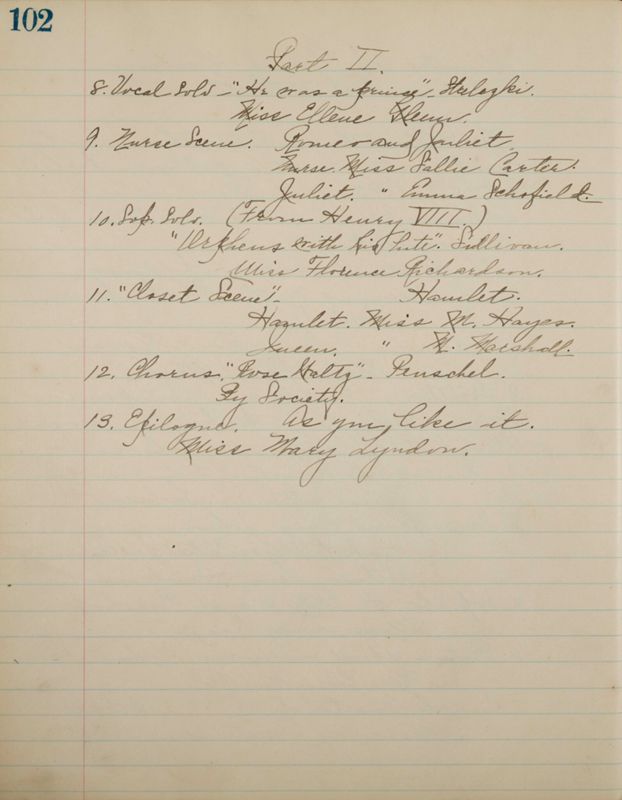 102
Part II.
8. Vocal Solo - "He was a prince".
Miss Ellene Glenn.
9. Nurse Scene. Romeo and Juliet.
Nurse. Miss Sallie Carter.
Juliet. " Emma Schofield.
10. Sop. Solo. (From Henry VIII.)
"Orpheus with his lute". Sullivan.
Miss Florence Richardson.
11. "Closet Scene" - Hamlet.
Hamlet. Miss M. Hayes.
Queen. " M. Marshall.
12. Chorus. "Rose Waltz" - Penschel.
By Society.
13. Epilogue. As you like it.
Miss Mary Lyndon.